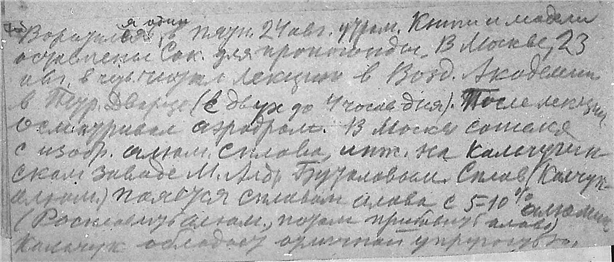 Воротился я один в пятн. 24 авг. утром. Книги и модели
оставлены Сок. для пропаганды. В Москве, 23
авг. в четв. читал лекцию в Возд. Академии
в Петр. Дворце (с двух до 4 часов дня). После лекции
осматривал аэродром. В Москве сошелся
с изобр. алюм. сплава, инж. на Кольчугин
ском заводе М. Буталовым. Сплав (Кольчук
алюм.) паяется сплавом олова с 5-10% алюмин
(Расплавить алюм., потом прибавить олово)
Кольчук обладает отличной упругостью.